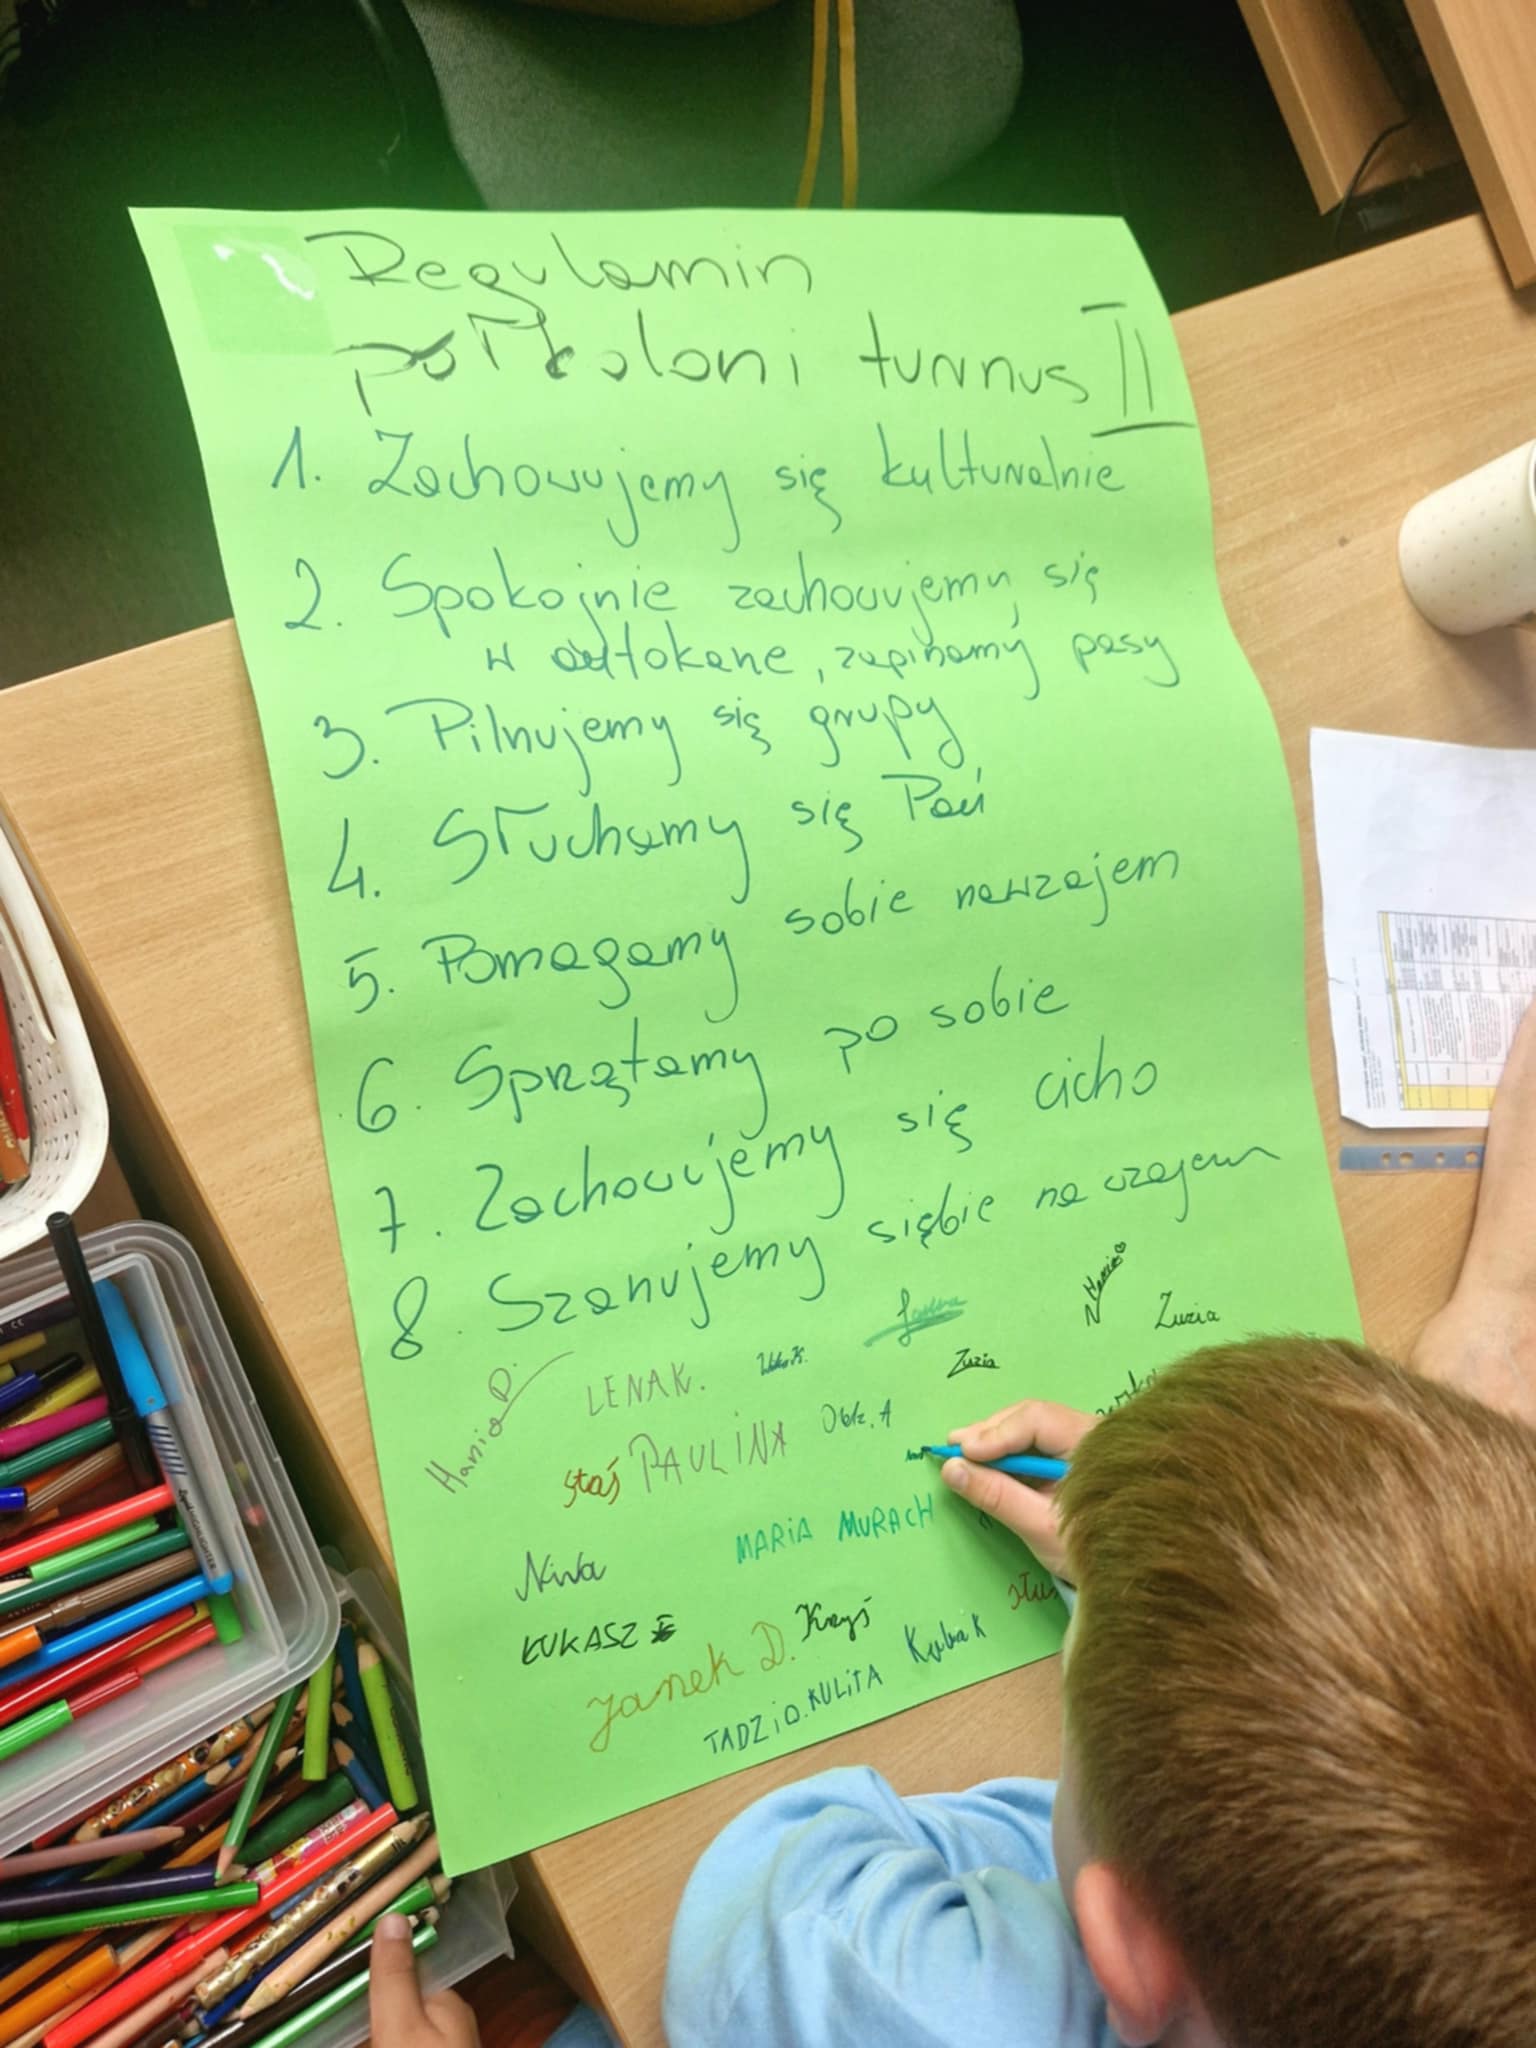 Regulamin
półkoloni turnus II
1. Zachowujemy się kulturalnie
2. Spokojnie zachowujemy się
w autokane, zapinamy pasy
3. Pilnujemy się grupy
4. Słuchamy się Pań
5. Pomagamy sobie nawzajem
6. Sprzątamy po sobie
7. Zachowujemy się cicho
8. Szanujemy siębie na wzajem
Hania
Zuzia
Hania D.
LENA K.
Zuzia
Staś
PAULINA
MARIA MURACH
Nina
ŁUKASZ
Janek D.
Krzyś
Kuba K
TADZIO.KULiTA